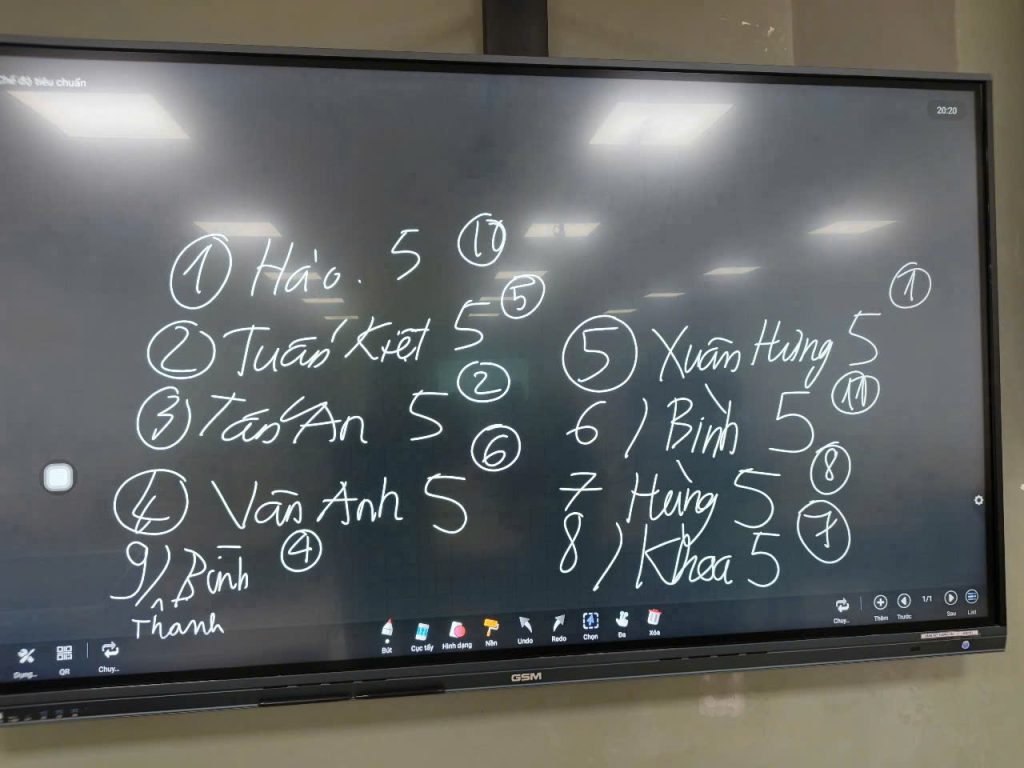 Chế độ tiêu chuẩn
20:20
① Hào. 5 ⑩
② Tuấn Kiệt 5 ⑤
③ Tấn An 5 ②
④ Vân Anh 5 ⑥
9) Bình ④
Thành
⑤ Xuân Hưng 5 ①
6) Bình 5 ⑪
7 Hùng 5 ⑧
8) Khoa 5 ⑦
Dụng... QR Chuy...
Bút Cục tẩy Hình dạng Nền Undo Redo Chọn Đa Xóa
Chuy... Thêm Trước 1/1 Sau List
GSM